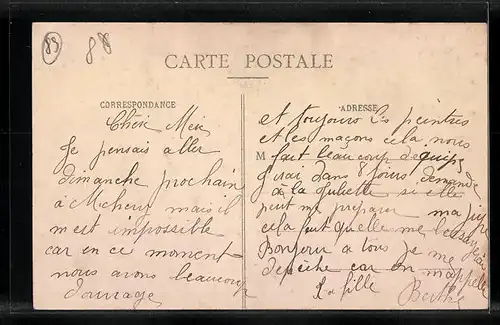 83
88
CARTE POSTALE
CORRESPONDANCE
Chère Mère
Je pensais aller
dimanche prochain
à Michery mais il
m est impossible
car en ce moment
nous avons beaucoup
d'ouvrage
ADRESSE
et toujours les peintres
et les maçons cela nous
M fait beaucoup de
dans 8 jours demande
à la Juliette si elle
peut me préparer ma jupe
cela fait quelle me
Bonjour a tous je me
depêche car on m appelle
La fille
Berthe